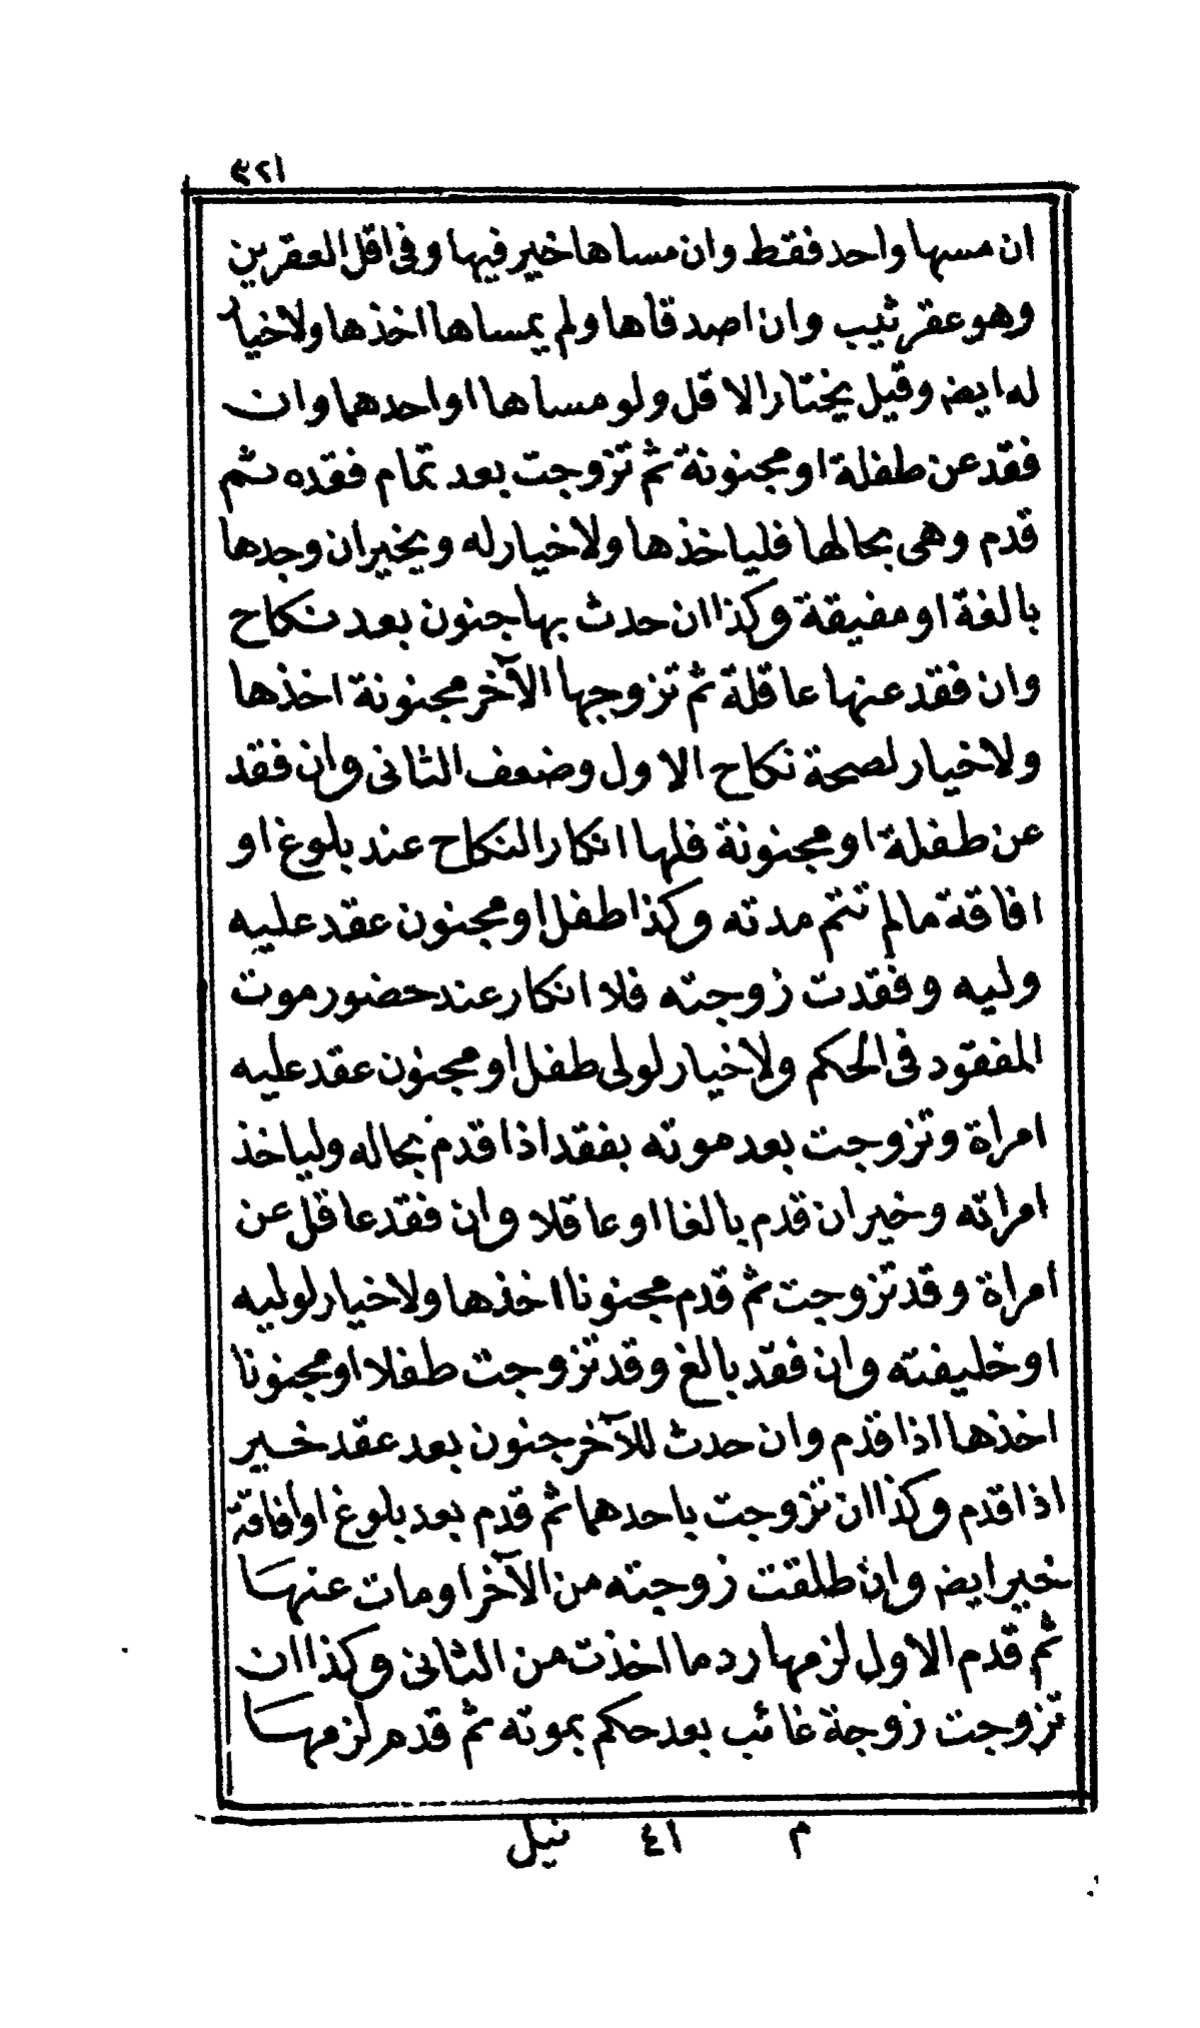 ٣٢١
ان مسها واحد فقط وان مساها خير فيها وفى اقل العقرين
وهو عقر ثيب وان اصدقاها ولم يمساها اخذها ولا خيار
له ايض وقيل يختار الاقل ولو مساها او احدهما وان
فقد عن طفلة او مجنونة ثم تزوجت بعد تمام فقده ثم
قدم وهى بحالها فلياخذها ولا خيار له ويخير ان وجدها
بالغة او مفيقة وكذا ان حدث بها جنون بعد نكاح
وان فقد عنها عاقلة ثم تزوجها الآخر مجنونة اخذها
ولا خيار لصحة نكاح الاول وضعف الثانى وان فقد
عن طفلة او مجنونة فلها انكار النكاح عند بلوغ او
افاقة مالم تتم مدته وكذا طفل او مجنون عقد عليه
وليه وفقدت زوجته فلا انكار عند حضور موت
المفقود فى الحكم ولا خيار لولى طفل او مجنون عقد عليه
امراة وتزوجت بعد موته بفقد اذا قدم بحاله ولياخذ
امراته وخير ان قدم بالغا او عاقلا وان فقد عاقل عن
امراة وقد تزوجت ثم قدم مجنونا اخذها ولا خيار لوليه
او خليفته وان فقد بالغ وقد تزوجت طفلا او مجنونا
اخذها اذا قدم وان حدث للآخر جنون بعد عقد خير
اذا قدم وكذا ان تزوجت باحدهما ثم قدم بعد بلوغ او افاقة
خير ايض وان طلقت زوجته من الآخر او مات عنها
ثم قدم الاول لزمها رد ما اخذت من الثانى وكذا ان
تزوجت زوجة غائب بعد حكم بموته ثم قدم لزمها
م ٤١ نيل